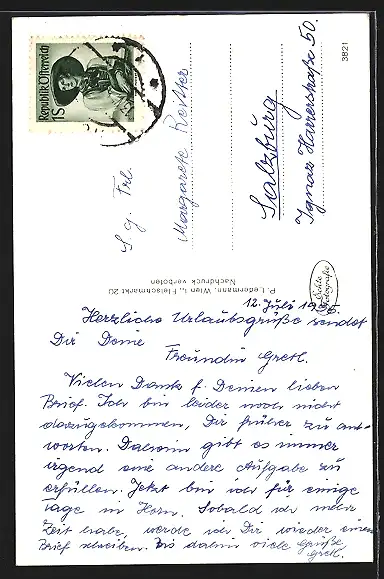 Republik Österreich
1S
S. g. Frl.
Margarete
Salzburg
Ignaz Harrerstraße 50.
3821
P. Ledermann, Wien I., Fleischmarkt 20
Nachdruck verboten
Echte
Photografie
12. Juli 19
Herzliche Urlaubsgrüße sendet
Dir Deine
Freundin Gretl.
Vielen Dank f. Deinen lieben
Brief. Ich bin leider noch nicht
dazugekommen, Dir früher zu ant-
worten. Daheim gibt es immer
irgend eine andere Aufgabe zu
erfüllen. Jetzt bin ich für einige
Tage in Horn. Sobald ich mehr
Zeit habe, werde ich Dir wieder einen
Brief schreiben. Bis dahin viele Grüße
Gretl.